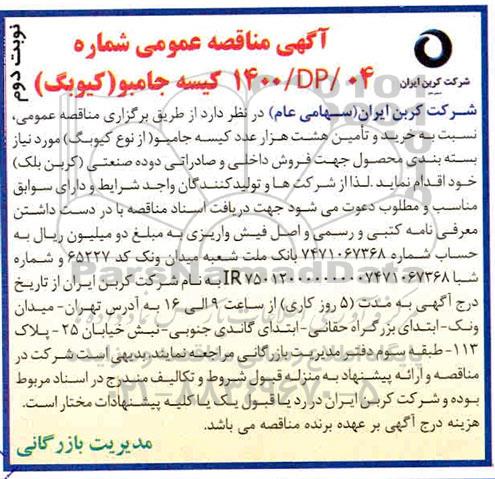 نوبت دوم
شرکت کربن ایران
آگهی مناقصه عمومی شماره
۱۴۰۰/DP/۰۴ کیسه جامبو(کیوبگ)
شرکت کربن ایران(سهامی عام) در نظر دارد از طریق برگزاری مناقصه عمومی،
نسبت به خرید و تأمین هشت هزار عدد کیسه جامبو( از نوع کیوبگ) مورد نیاز
بسته بندی محصول جهت فروش داخلی و صادراتی دوده صنعتی (کربن بلک)
خود اقدام نماید .لذا از شرکت ها و تولیدکنندگان واجد شرایط و دارای سوابق
مناسب و مطلوب دعوت می شود جهت دریافت اسناد مناقصه با در دست داشتن
معرفی نامه کتبی و رسمی و اصل فیش واریزی به مبلغ دو میلیون ریال به
حساب شماره ۷۴۷۱۰۶۷۳۶۸ بانک ملت شعبه میدان ونک کد ۶۵۲۲۷ و شماره
شبا ۷۴۷۱۰۶۷۳۶۸ IR به نام شرکت کربن ایران از تاریخ
درج آگهی به مدت (۵ روز کاری) از ساعت ۹ الی ۱۶ به آدرس تهران- میدان
ونک-ابتدای بزرگراه حقانی-ابتدای گاندی جنوبی-نبش خیابان ۲۵ - پلاک
۱۱۳- طبقه سوم دفتر مدیریت بازرگانی مراجعه نمایند.بدیهی است شرکت در
مناقصه و ارائه پیشنهاد به منزله قبول شروط و تکالیف مندرج در اسناد مربوط
بوده و شرکت کربن ایران در رد یا قبول یک یا کلیه پیشنهادات مختار است.
هزینه درج آگهی بر عهده برنده مناقصه می باشد.
مدیریت بازرگانی
ParsNamadData
۰۲۱-۸۸۳۴۹۶۷۰-۵